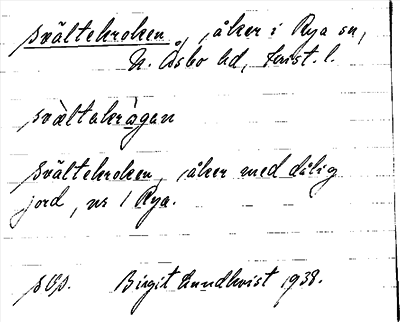 Svältekroken, åker i Rya sn,
N. Åsbo hd, Krist. l.
svältakrågan
Svältekroken, åker med dålig
jord, nr 1 Rya.
s Op. Birgit Lundkvist 1938.